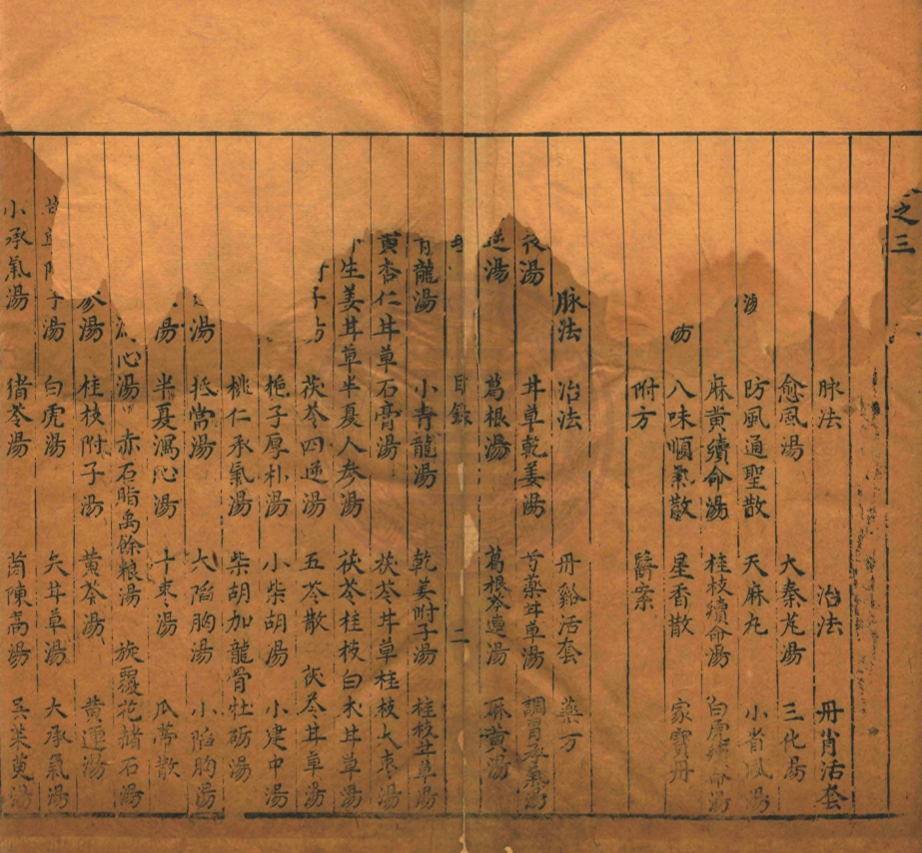 之三
脉法 治法 丹 活套
愈風湯 大秦艽湯 三化湯
防風通聖散 天麻丸 小省風湯
麻黄續命湯 桂枝續命湯 白虎續命湯
八味順氣散 星香散 家寶丹
附方 醫案
脉法 治法 丹谿活套 藥方
湯 甘草乾姜湯 芍藥甘草湯 調胃承氣湯
逆湯 葛根湯 葛根芩連湯 麻黄湯
目録 二
青龍湯 小青龍湯 乾姜附子湯 桂枝甘草湯
黄杏仁甘草石膏湯 茯苓甘草桂枝大枣湯
生姜甘草半夏人参湯 茯苓桂枝白术甘草湯
子湯 茯苓四逆湯 五苓散 茯苓甘草湯
梔子厚朴湯 小柴胡湯 小建中湯
桃仁承氣湯 柴胡加龍骨牡砺湯
湯 抵當湯 大陷胸湯 小陷胸湯
湯 半夏瀉心湯 十枣湯 瓜蒂散
心湯 赤石脂禹餘粮湯 旋覆花赭石湯
参湯 桂枝附子湯 黄芩湯 黄連湯
子湯 白虎湯 炙甘草湯 大承氣湯
小承氣湯 猪苓湯 茵陳蒿湯 吳茱萸湯